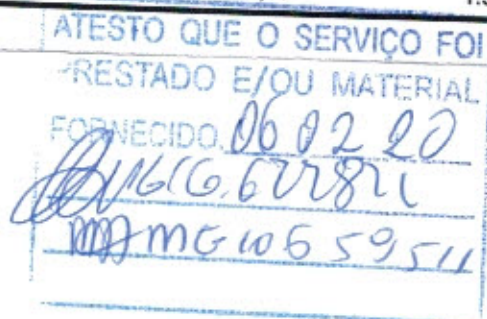 ATESTO QUE O SERVIÇO FOI
PRESTADO E/OU MATERIAL
FORNECIDO. 06 02 20
MG 10659511